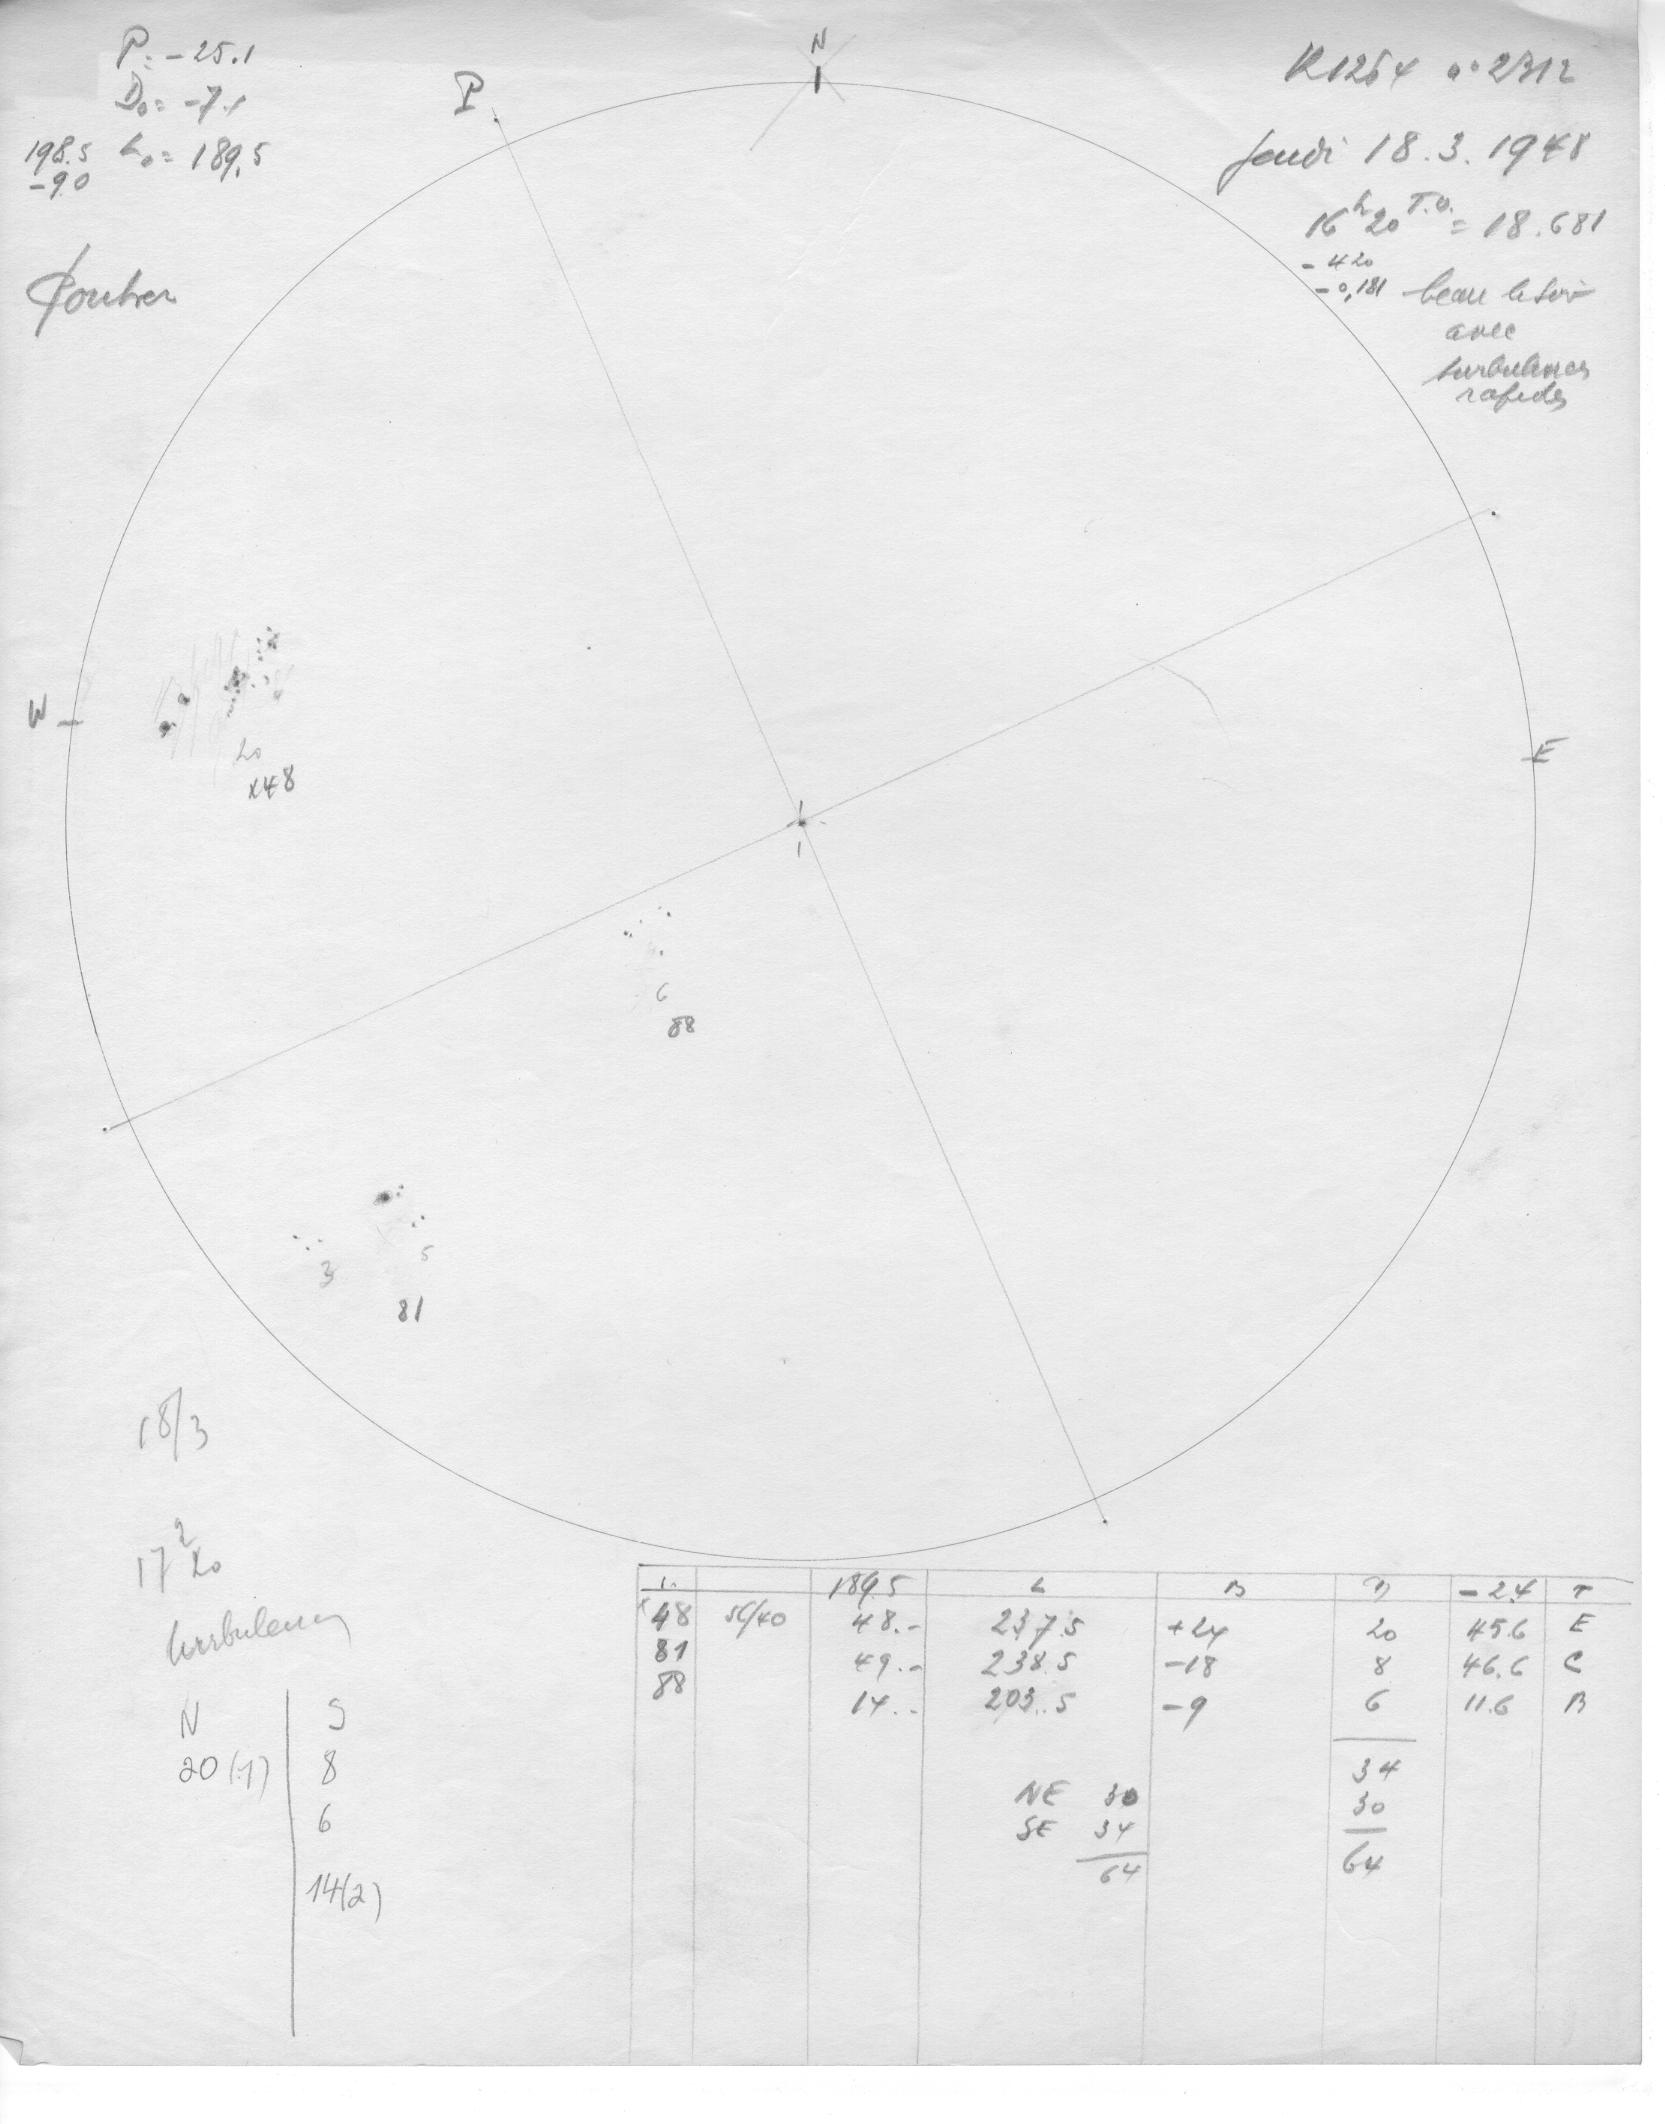 P = -25.1
D₀ = -7.1
198.5 L₀ = 189,5
-9.0
P
N
R1264 n° 2312
Jeudi 18.3.1948
16h20 T.U. = 18.681
-420
-0,181
beau le soir
avec
turbulences
rapides
W
E
20
x48
6
88
3
5
81
18/3
17 20
2
turbulence
N S
20(1) 8
6
14(2)
189.5 L B -2.4 T
x48 56/40 48.- 237.5 +24 20 45.6 E
81 49.- 238.5 -18 8 46.6 C
88 14.- 203.5 -9 6 11.6 B
34
NE 30 30
SE 34
64 64